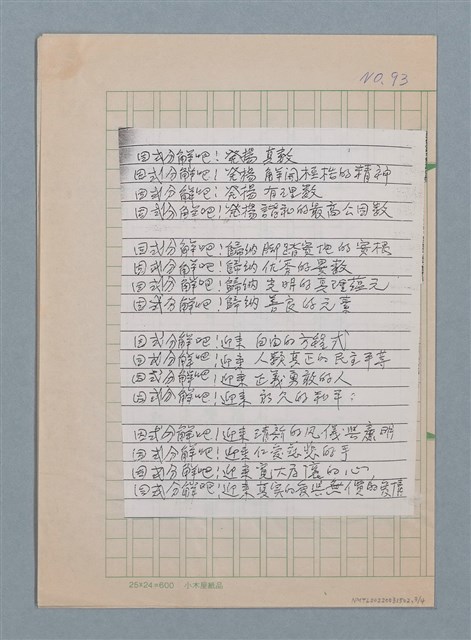 NO. 93
因式分解吧！發揚真數
因式分解吧！發揚解開桎梏的精神
因式分解吧！發揚有理數
因式分解吧！發揚諧和的最高公因數
因式分解吧！歸納腳踏實地的實根
因式分解吧！歸納優秀的異數
因式分解吧！歸納光明的真理蘊元
因式分解吧！歸納善良的元素
因式分解吧！迎來自由的方程式
因式分解吧！迎來人類真正的民主平等
因式分解吧！迎來正義勇敢的人
因式分解吧！迎來永久的和平；
因式分解吧！迎來清新的風儀與廉明
因式分解吧！迎來仁愛慈悲的手
因式分解吧！迎來寬大為懷的心
因式分解吧！迎來真實的愛與無價的愛情
25×24=600 小木屋紙品